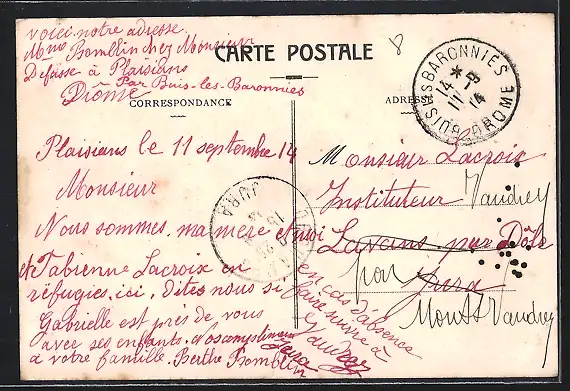 voici notre adresse
Mme Bomblin chez Monsieur
Defasse à Plaisians
Par Buis-les-Baronnies
Drôme
CARTE POSTALE
8
CORRESPONDANCE
ADRESSE
BUIS-LES-BARONNIES
DROME
14
11 - 9
14
JURA
Plaisians le 11 septembre 14
Monsieur
Nous sommes, ma mère et moi
et Fabienne Lacroix en
réfugiés ici. Dites nous si
Gabrielle est près de vous
avec ses enfants. Nos compliments
à votre famille. Berthe Bomblin
Monsieur Lacroix
Instituteur Vaudrey
Lavans par Dôle
par Jura
Mont s Vaudrey
en cas d'absence
faire suivre à
Vaudrey
Jura